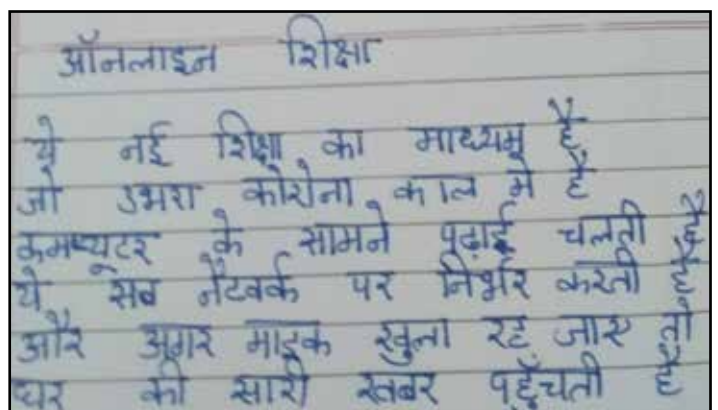 ऑनलाइन शिक्षा
ये नई शिक्षा का माध्यम है
जो उभरा कोरोना काल मे है
कमप्यूटर के सामने पढ़ाई चलती है
ये सब नेटवर्क पर निर्भर करती है
और अगर माइक खुला रह जाए तो
घर की सारी खबर पहुँचती है